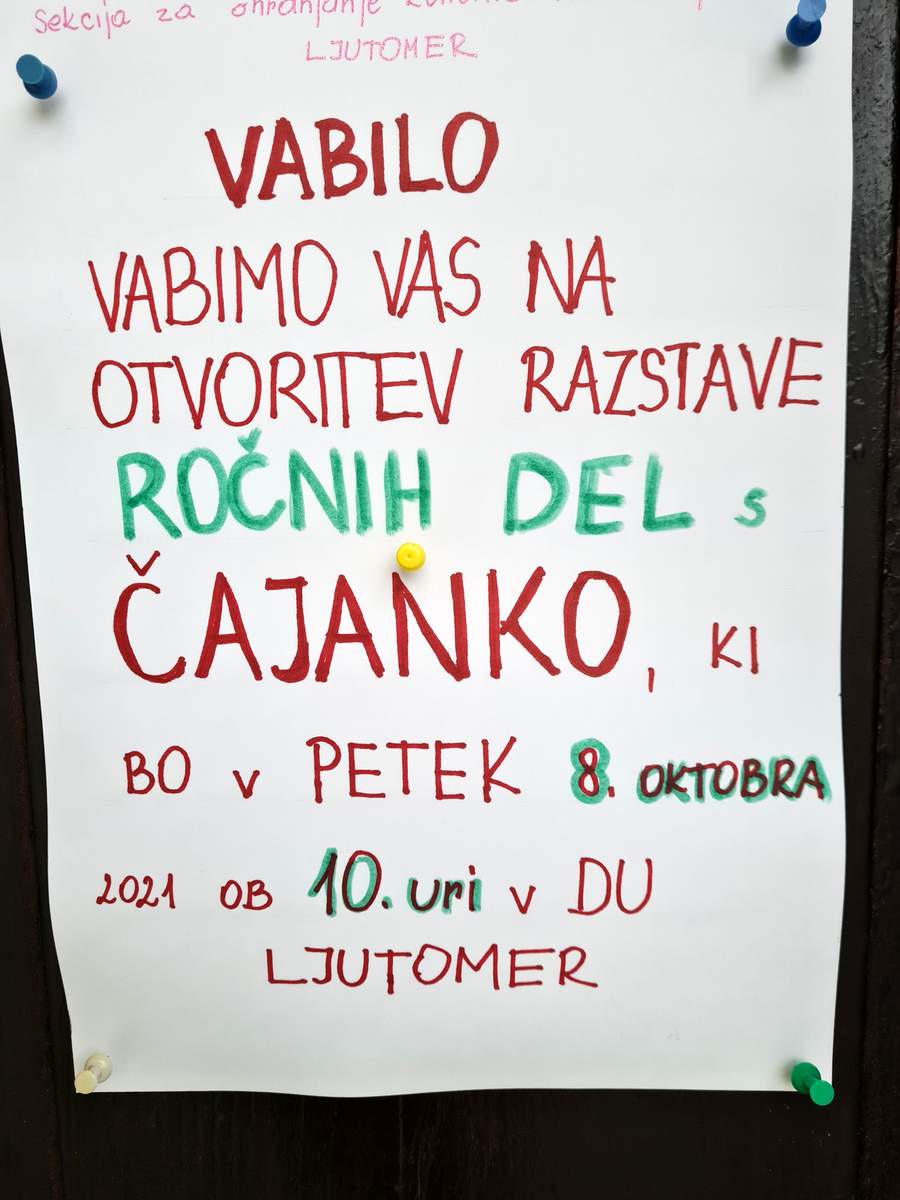 Sekcija za ohranjanje
LJUTOMER
VABILO
VABIMO VAS NA
OTVORITEV RAZSTAVE
ROČNIH DEL s
ČAJANKO, KI
BO v PETEK 8. OKTOBRA
2021 OB 10. uri v DU
LJUTOMER